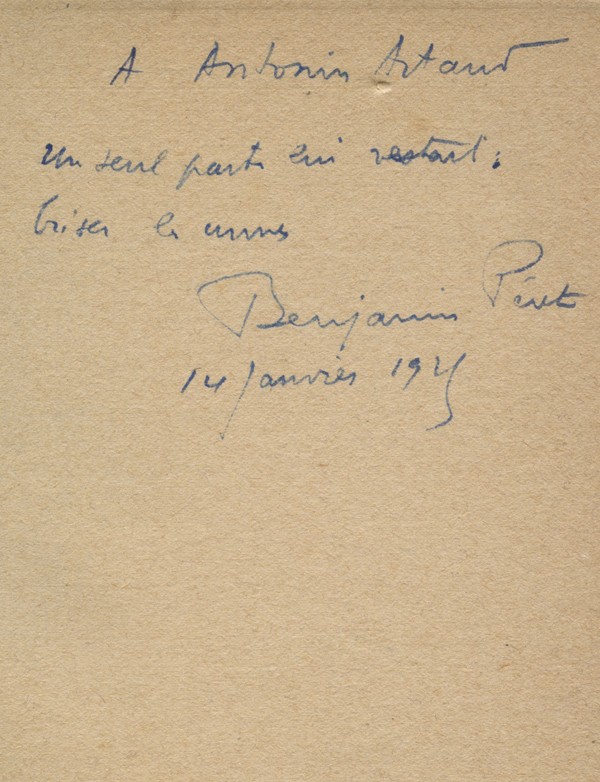 A Antonin Artaud
Un seul parti lui restait :
briser
Benjamin Péret
14 Janvier 1925